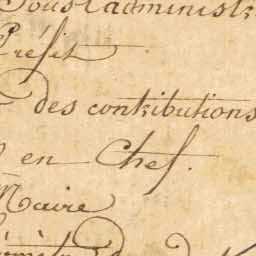 Sous l'administr
Préfet
des contributions
en Chef.
Maire